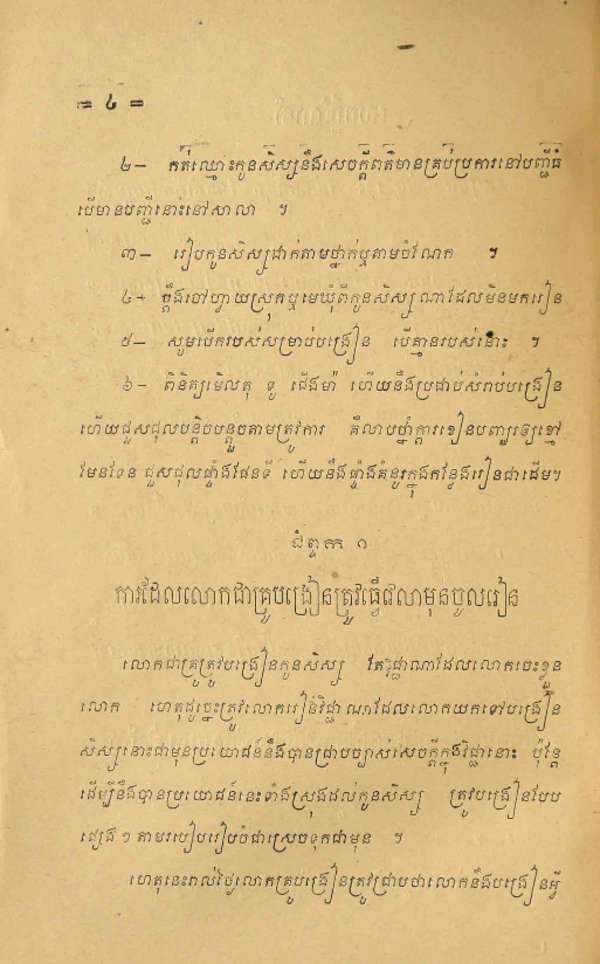 = ៤ =
២- កត់ឈ្មោះកូនសិស្សនឹងសេចក្ដីពត៌មានគ្រប់ប្រការនៅបញ្ជីធំ
បើមានបញ្ជីនោះនៅសាលា ។
៣- រៀបកូនសិស្សដាក់តាមថ្នាក់ឬតាមចំណែក ។
៤- ប្ដឹងចៅហ្វាយស្រុកឬមេឃុំពីកូនសិស្សណាដែលមិនមករៀន
៥- សូមបើករបស់សម្រាប់បង្រៀន បើគ្មានរបស់នោះ ។
៦- ពិនិត្យមើលតុ ទូ ជើងម៉ា ហើយនឹងប្រដាប់សំរាប់បង្រៀន
ហើយជួសជុលបន្តិចបន្តួចតាមត្រូវការ គឺលាបថ្នាំក្ដារខៀនបញ្ឈរឲ្យខ្មៅ
មែនទែន ជួសជុលផ្ទាំងផែនទី ហើយនឹងផ្ទាំងគំនូរក្នុងកន្លែងរៀនជាដើម។
ជំពូក ១
ការដែលលោកជាគ្រូបង្រៀនត្រូវធ្វើវេលាមុនចូលរៀន
លោកជាគ្រូត្រូវបង្រៀនកូនសិស្ស តែវិជ្ជាណាដែលលោកចេះខ្លួន
លោក ហេតុដូច្នេះត្រូវលោករៀនវិជ្ជាណាដែលលោកយកទៅបង្រៀន
សិស្សនោះជាមុនប្រយោជន៍នឹងបានជ្រាបច្បាស់សេចក្ដីក្នុងវិជ្ជានោះ ប៉ុន្តែ
ដើម្បីនឹងបានប្រយោជន៍នេះទាំងស្រុងដល់កូនសិស្ស ត្រូវបង្រៀនបែប
ផ្សេង ៗ តាមរបៀបរៀបចំជាស្រេចទុកជាមុន ។
ហេតុនេះរាល់ថ្ងៃលោកគ្រូបង្រៀនត្រូវជ្រាបថាលោកនឹងបង្រៀនអ្វី